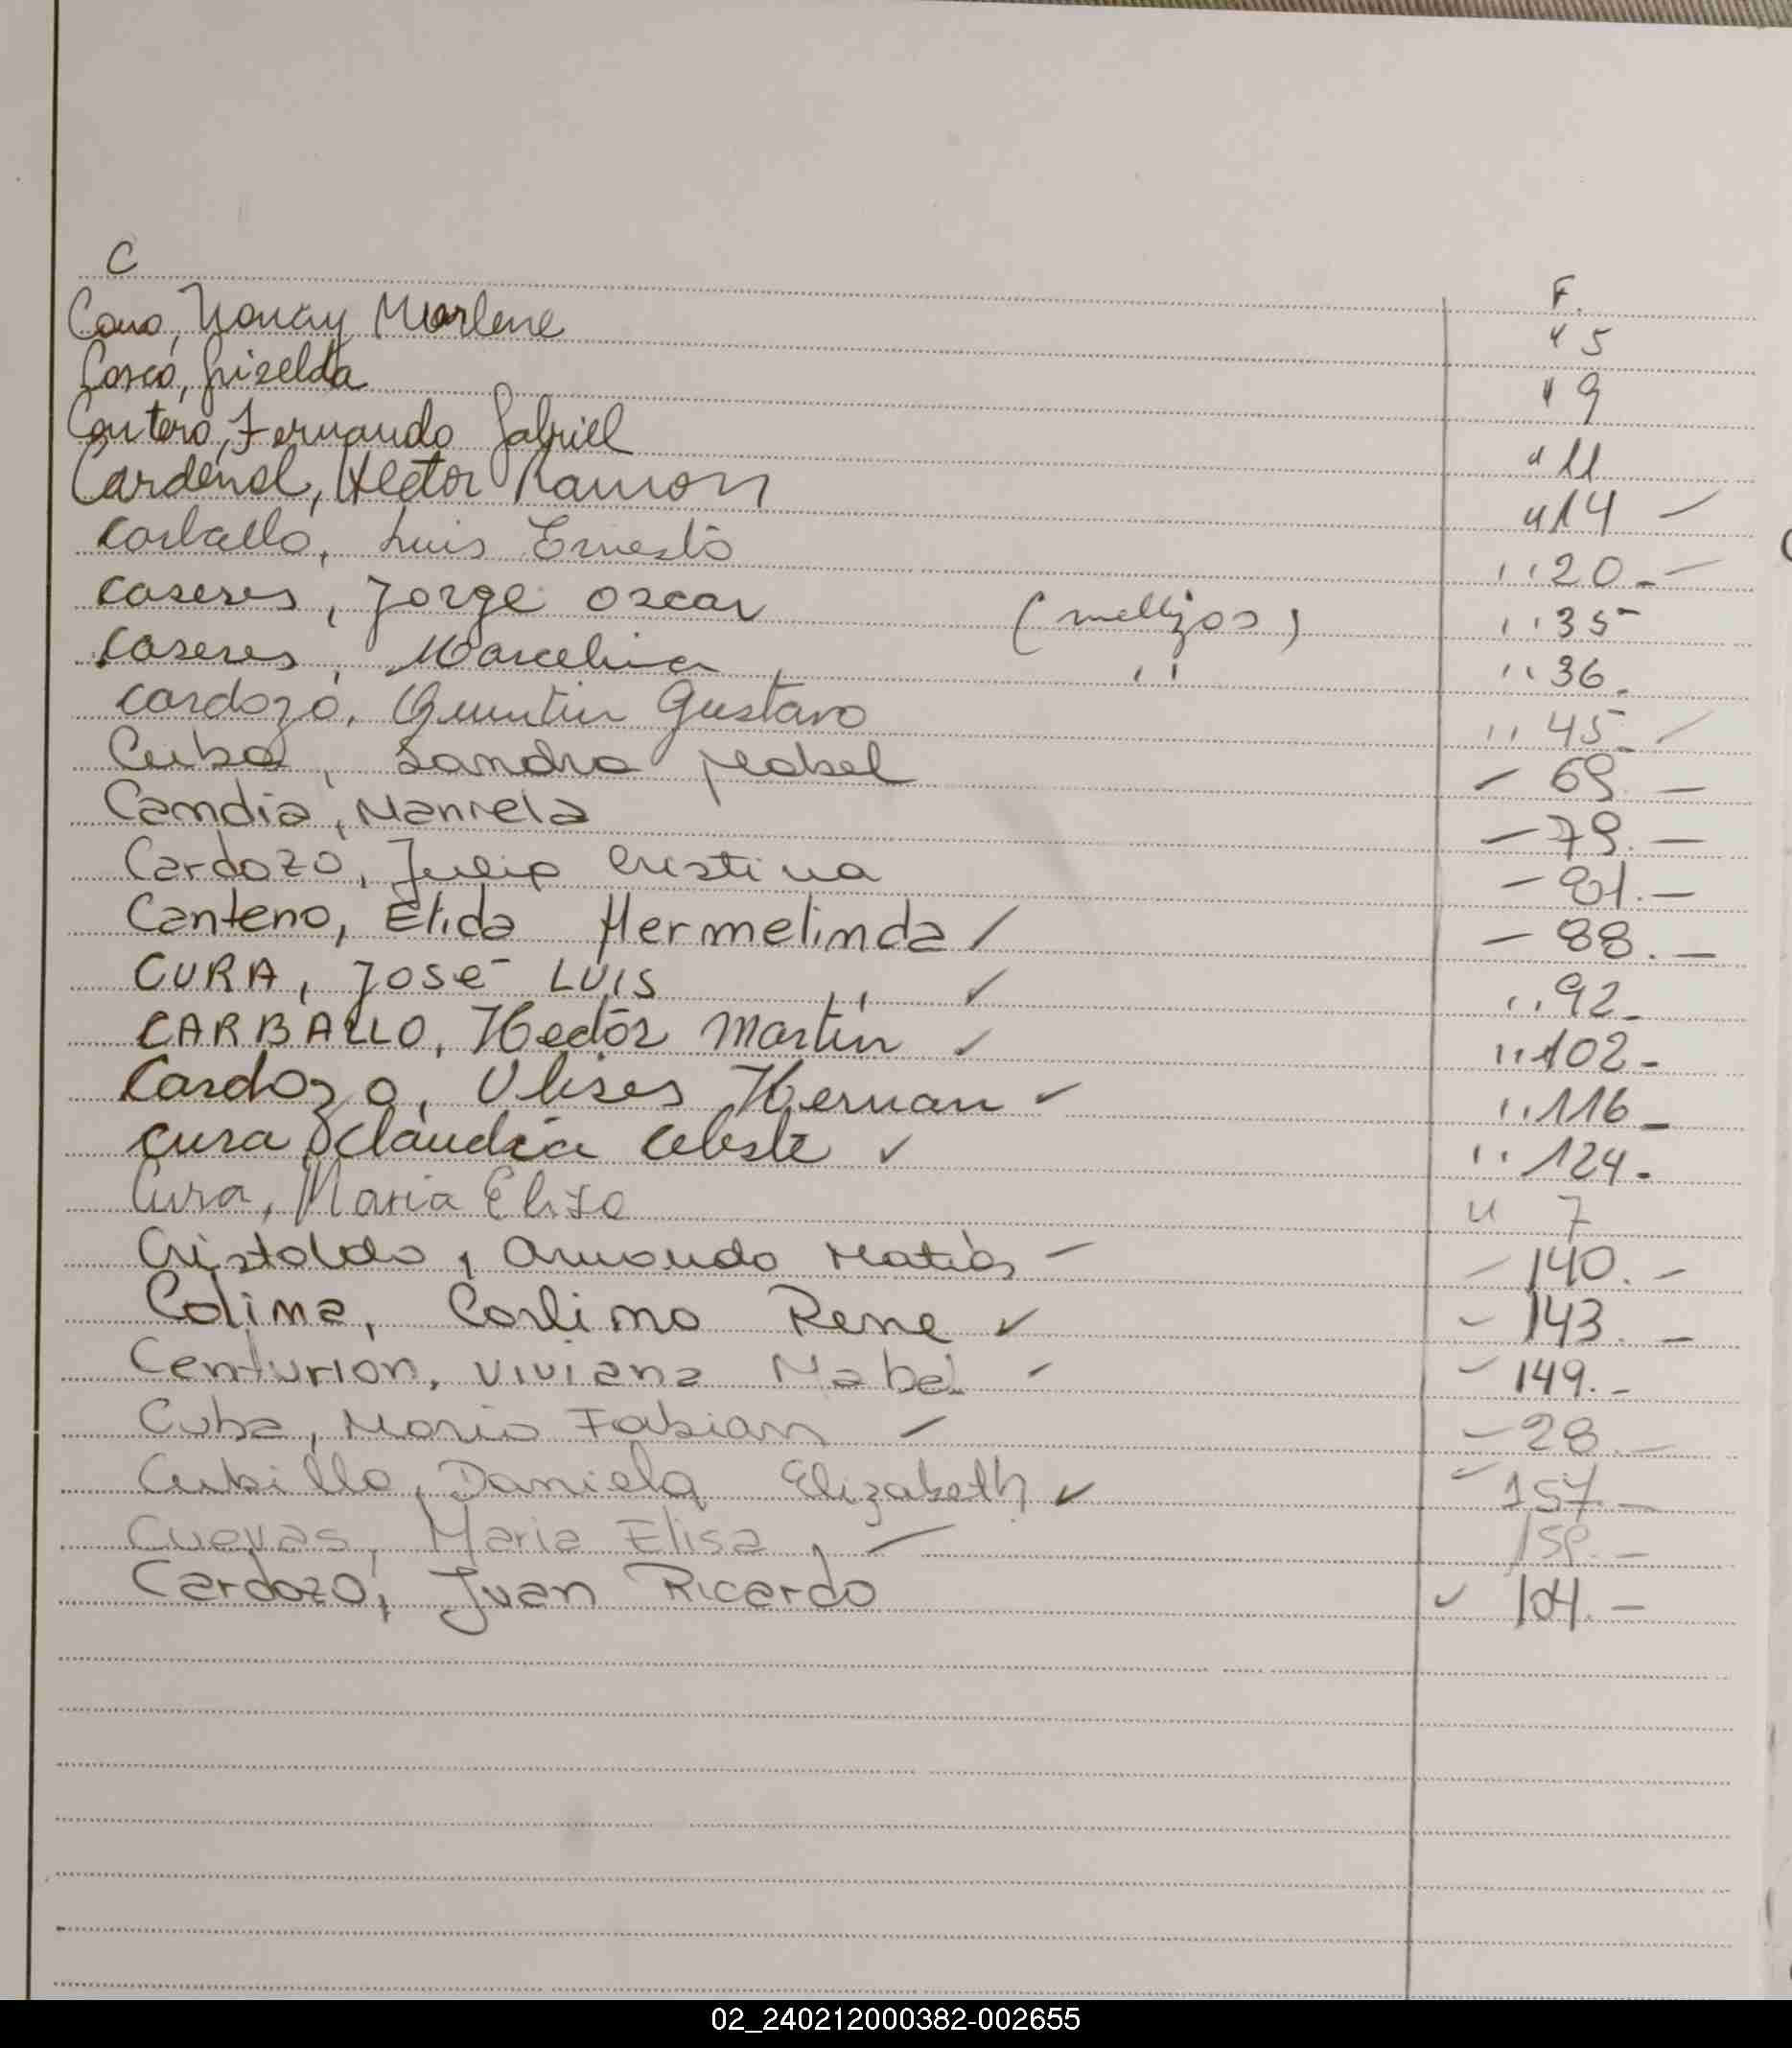 C
F.
Cano, Nancy Marlene " 5
Cosco, Griselda " 9
Cantero, Fernando Gabriel " 11
Cardenal, Hector Ramon " 14 —
Carballo, Luis Ernesto " 20.- —
Caseres, Jorge Oscar (mellizos) " 35-
Caseres, Marcelina " " 36.
Cardozo, Quintin Gustavo " 45.- ✓
Cuba, Sandra Mabel - 69. —
Candia, Mariela - 79. —
Cardozo, Julia Cristina - 81. —
Canteno, Elida Hermelinda / - 88. —
CURA, JOSÉ LUIS " ✓ " 92.-
CARBALLO, Hector Martín ✓ " 102.-
Cardozo, Ulises Hernan ✓ " 116.-
Cura Claudia Celeste ✓ " 124.-
Cura, Maria Elisa " 7
Cristaldo, Armando Matias - - 140. -
Colima, Carlima Rene ✓ - 143. -
Centurion, Viviana Mabel - - 149.-
Cuba, Mario Fabian - - 28. -
Cubilla, Daniela Elizabeth ✓ - 157. -
Cuevas, Maria Elisa, — 159. -
Cardozo, Juan Ricardo ✓ 104. -
02_240212000382-002655